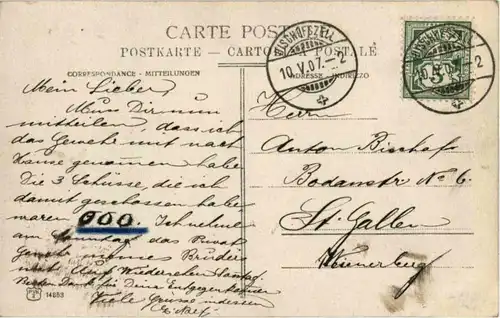 CARTE POSTALE
POSTKARTE - CARTOLINA POSTALE
CORRESPONDANCE - MITTEILUNGEN
ADRESSE - INDIRIZZO
BISCHOFSZELL
10.V.07.-2
BISCHOFSZELL
10.V.07.-2
5
Mein Lieber,
Muss Dir nun
mitteilen, dass ich
das Gewehr mit nach
Hause genommen habe.
Die 3 Schüsse, die ich
damit geschossen habe
waren 000. Ich nehme
am Sonntag das Privat
Gewehr meines Bruders
mit. Auf Wiedersehen Sonntag.
Besten Dank für Deine Entgegenkommen
Viele Grüsse indessen
Herrn
Anton Bischof
Bodanstr No 6.
St. Gallen
14853